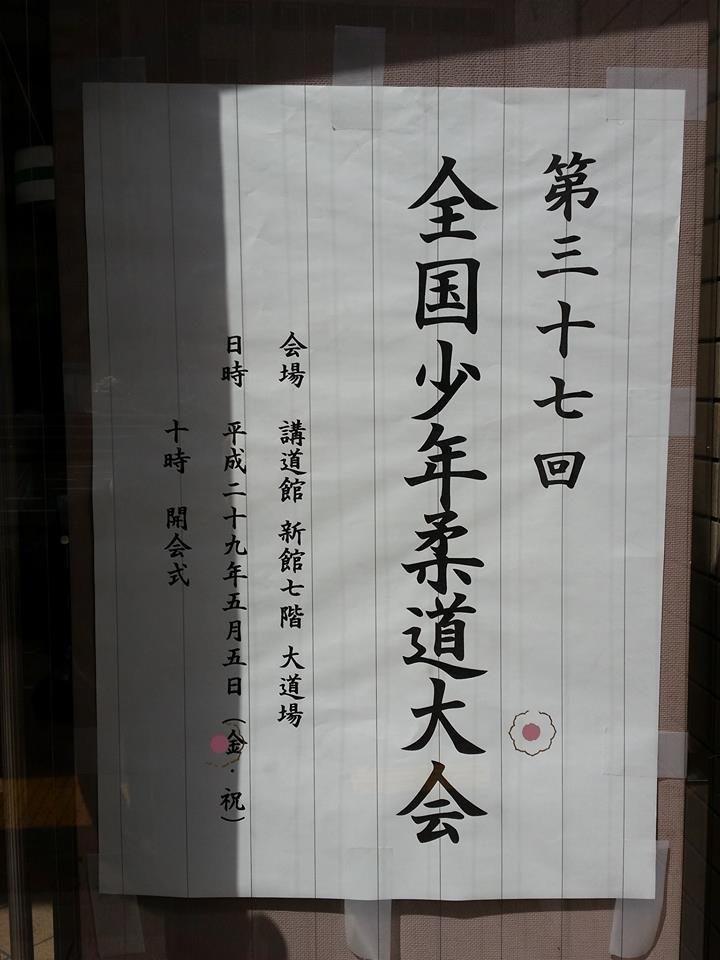 第三十七回
全国少年柔道大会
会場 講道館 新館七階 大道場
日時 平成二十九年五月五日（金・祝）
十時 開会式